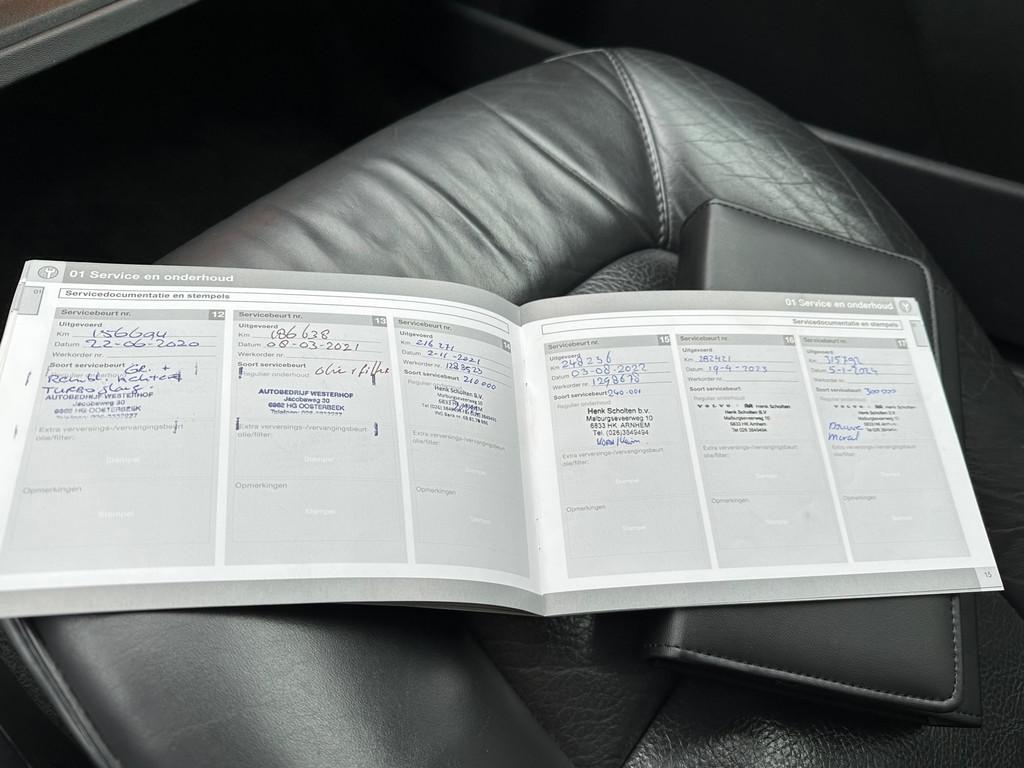 01 Service en onderhoud
01
Servicedocumentatie en stempels
Servicebeurt nr. 12
Uitgevoerd
Km 156694
Datum 22-06-2020
Werkorder nr.
Soort servicebeurt Gr. +
Regulier onderhoud:
AUTOBEDRIJF WESTERHOF
Jacobaweg 30
6862 HG OOSTERBEEK
Extra verversings-/vervangingsbeurt
olie/filter:
Stempel
Opmerkingen
Stempel
Servicebeurt nr. 13
Uitgevoerd
Km 186638
Datum 08-03-2021
Werkorder nr.
Soort servicebeurt
Regulier onderhoud: Olie + filter
AUTOBEDRIJF WESTERHOF
Jacobaweg 30
6862 HG OOSTERBEEK
Extra verversings-/vervangingsbeurt
olie/filter:
Stempel
Opmerkingen
Stempel
Servicebeurt nr. 14
Uitgevoerd
Km 216271
Datum 2-11-2021
Werkorder nr. 1283523
Soort servicebeurt 210 000
Regulier onderhoud:
Henk Scholten b.v.
Extra verversings-/vervangingsbeurt
olie/filter:
Stempel
Opmerkingen
Stempel
01 Service en onderhoud
Servicedocumentatie en stempels
Servicebeurt nr. 15
Uitgevoerd
Km 248236
Datum 03-08-2022
Werkorder nr. 1298678
Soort servicebeurt 240.000
Regulier onderhoud:
Henk Scholten b.v.
Malburgseveerweg 10
6833 HK ARNHEM
Tel. (026)3649494
Extra verversings-/vervangingsbeurt
olie/filter:
Stempel
Opmerkingen
Stempel
Servicebeurt nr. 16
Uitgevoerd
Km 282421
Datum 19-4-2023
Werkorder nr.
Soort servicebeurt
Regulier onderhoud:
VOLVO Henk Scholten
Henk Scholten B.V.
Malburgseveerweg 10
6833 HK Arnhem
Tel. 026-3649494
Extra verversings-/vervangingsbeurt
olie/filter:
Stempel
Opmerkingen
Stempel
Servicebeurt nr. 17
Uitgevoerd
Km 315292
Datum 5-1-2024
Werkorder nr.
Soort servicebeurt 300 000
Regulier onderhoud:
VOLVO Henk Scholten
Henk Scholten B.V.
Extra verversings-/vervangingsbeurt
olie/filter:
Stempel
Opmerkingen
Stempel
15